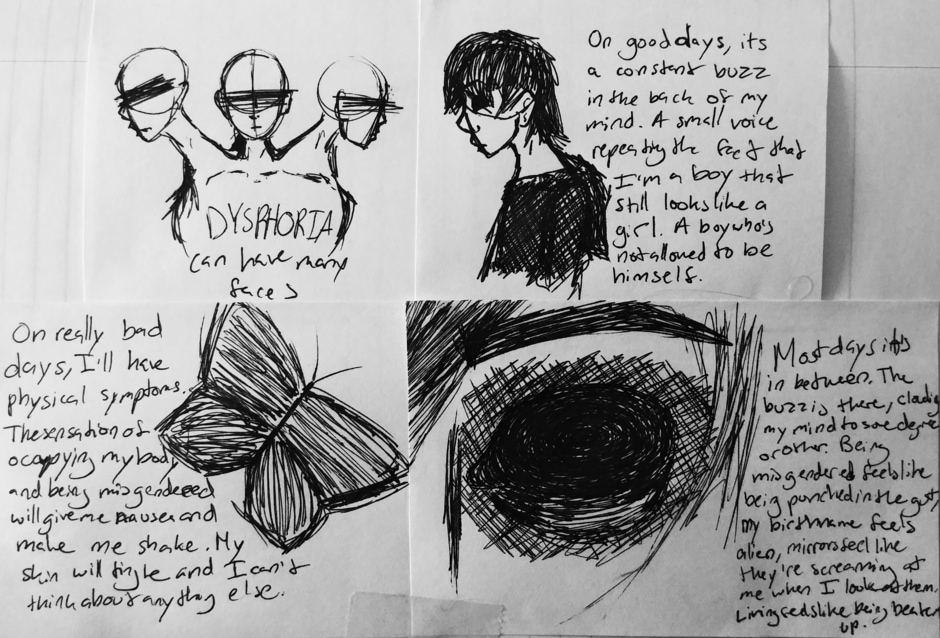 DYSPHORIA
can have many
faces
On good days, its
a constant buzz
in the back of my
mind. A small voice
repeating the fact that
I'm a boy that
still looks like a
girl. A boy who's
not allowed to be
himself.
On really bad
days, I'll have
physical symptoms.
The sensation of
occupying my body
and being misgendered
will give me nausea and
make me shake. My
skin will tingle and I can't
think about anything else.
Most days it's
in between. The
buzz is there, clouding
my mind to some degree
or other. Being
misgendered feels like
being punched in the gut,
my birthname feels
alien, mirrors feel like
they're screaming at
me when I look at them.
Living feels like being beaten
up.